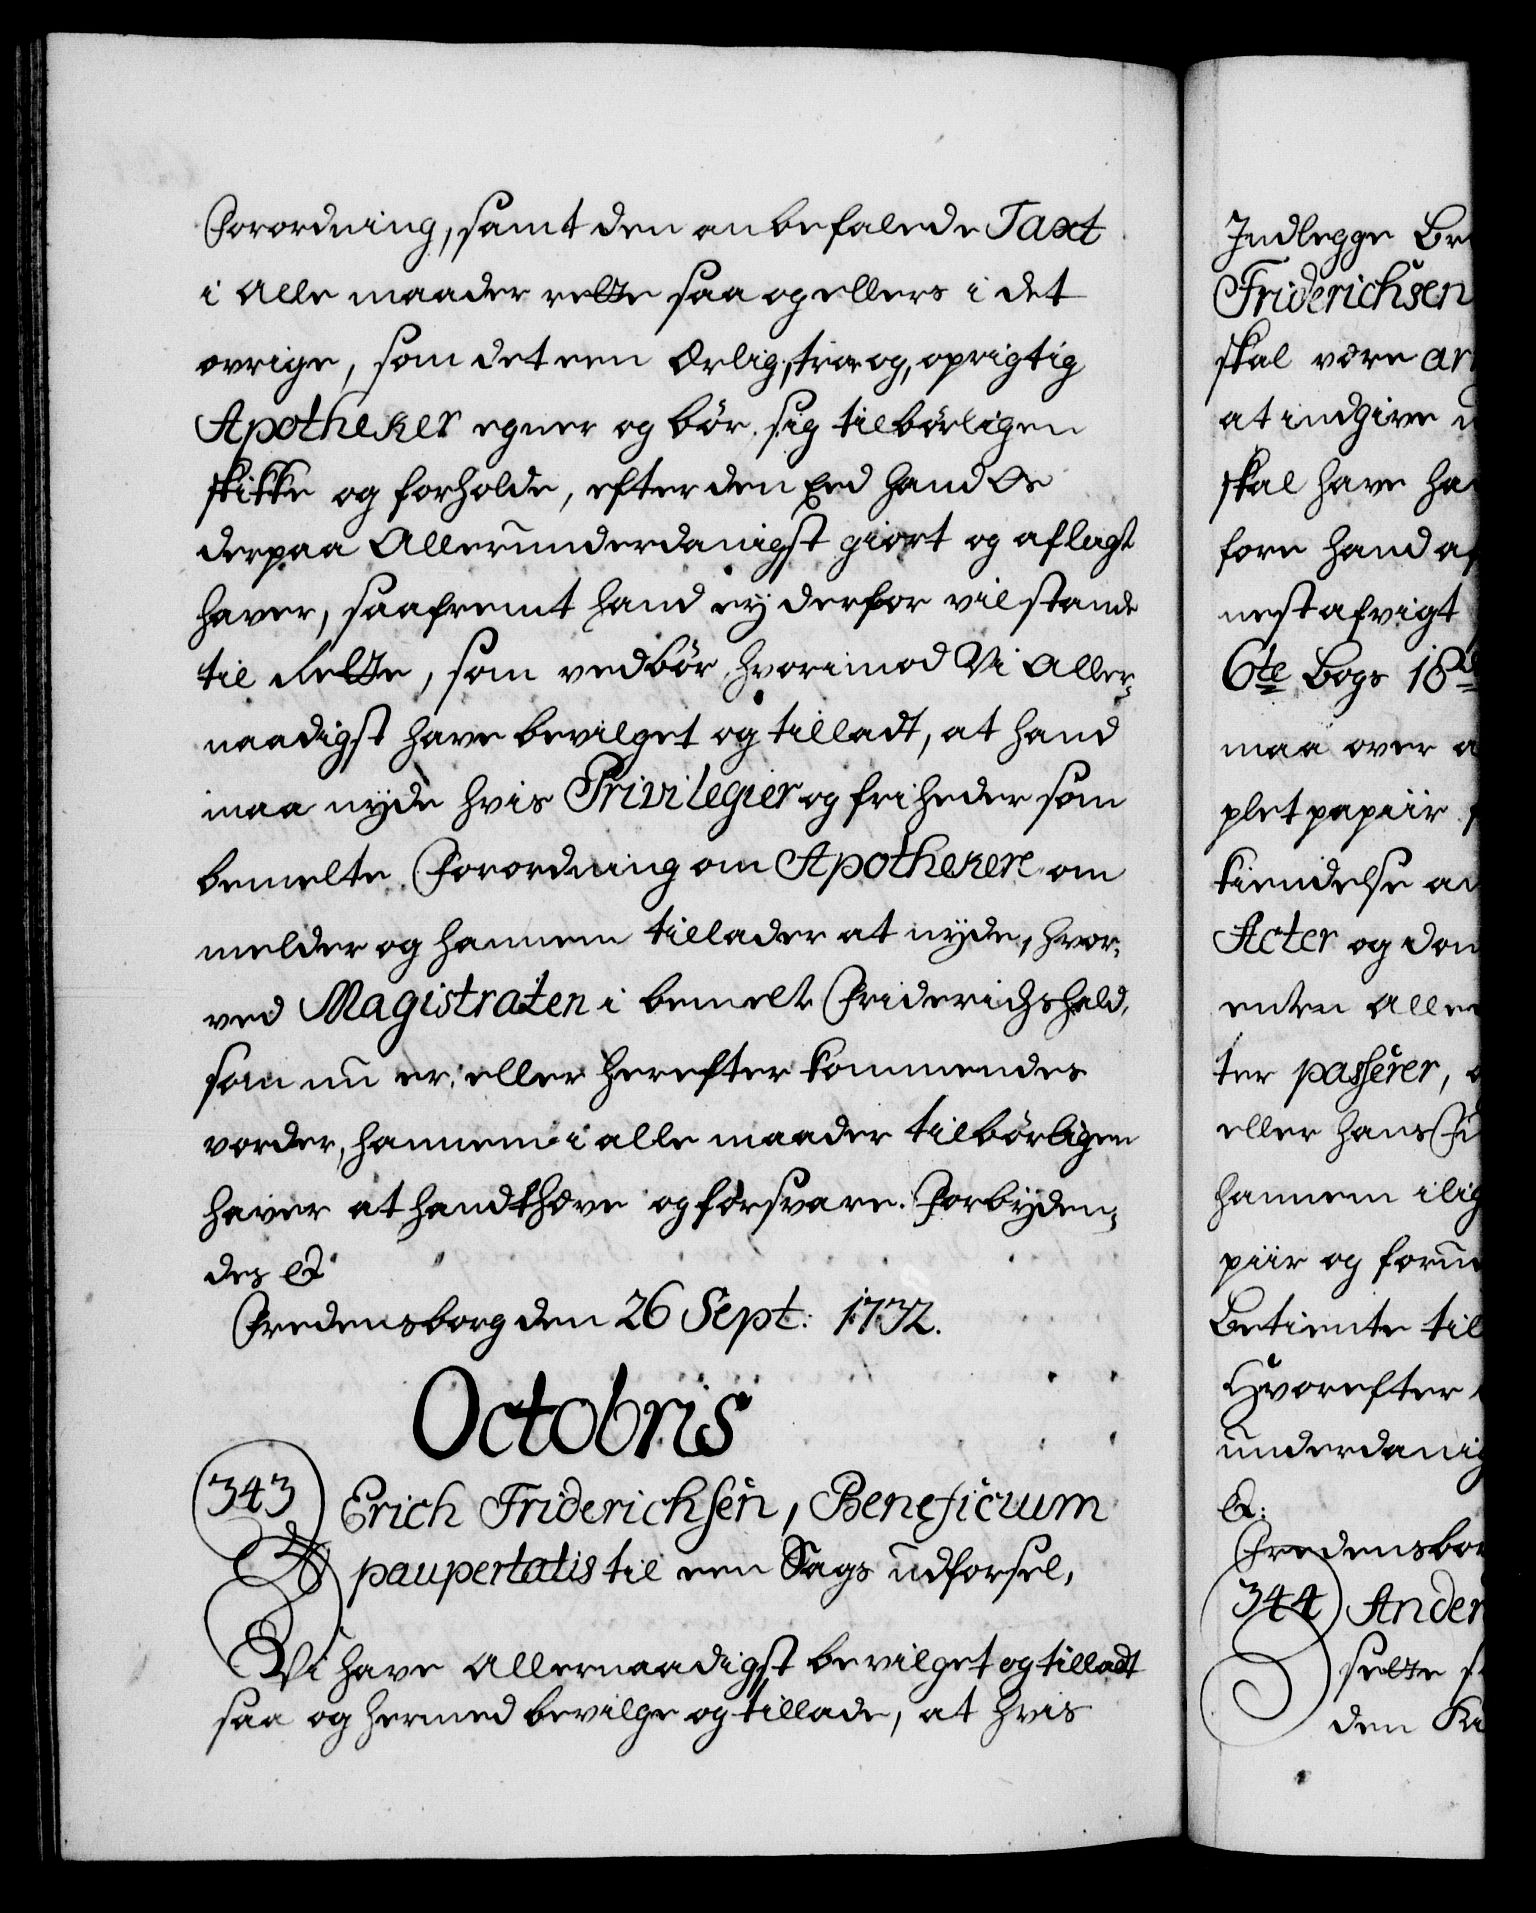 Forordning, samt den anbefalede Taxt
i Alle maader rette saa og ellers i det
øvrige, som det een Ærlig, troe og, oprigtig
Apotheker egner og bør, sig tilbørligen
skikke og forholde, efter den Eed hand Os
derpaa Allerunderdanigst giort og aflagt
haver, saafremt hand ey derfor vil stande
til Rette, som vedbør, hvorimod Vi Aller-
naadigst have bevilget og tilladt, at hand
maa nyde hvis Privilegier og friheder som
bemelte Forordning om Apothekere om
melder og hannem tillader at nyde, hvor-
ved Magistraten i bemelte Friderichshald,
som nu er, eller herefter kommendes
vorder, hannem i alle maader tilbørligen
haver at handthæve og forsvare. Forbyden-
des &
Fredensborg den 26 Sept: 1732.
Octobris
343 Erich Friderichsen, Beneficium
paupertatis til een Sags udførsel,
Vi have Allernaadigst bevilget og tilladt
saa og hermed bevilge og tillade, at hvis
Indlegge
Friderichsen
skal være
at indgive
skal have
fore hand
nest afvigt
6te Bogs 18
maa over
plet papiir
kiendelse
Acter og
enten
ter passerer,
eller hans
hannem
piir og
Betiente til
Hvorefter
underdanig
&:
Fredensbor
344 Ander
selte
den